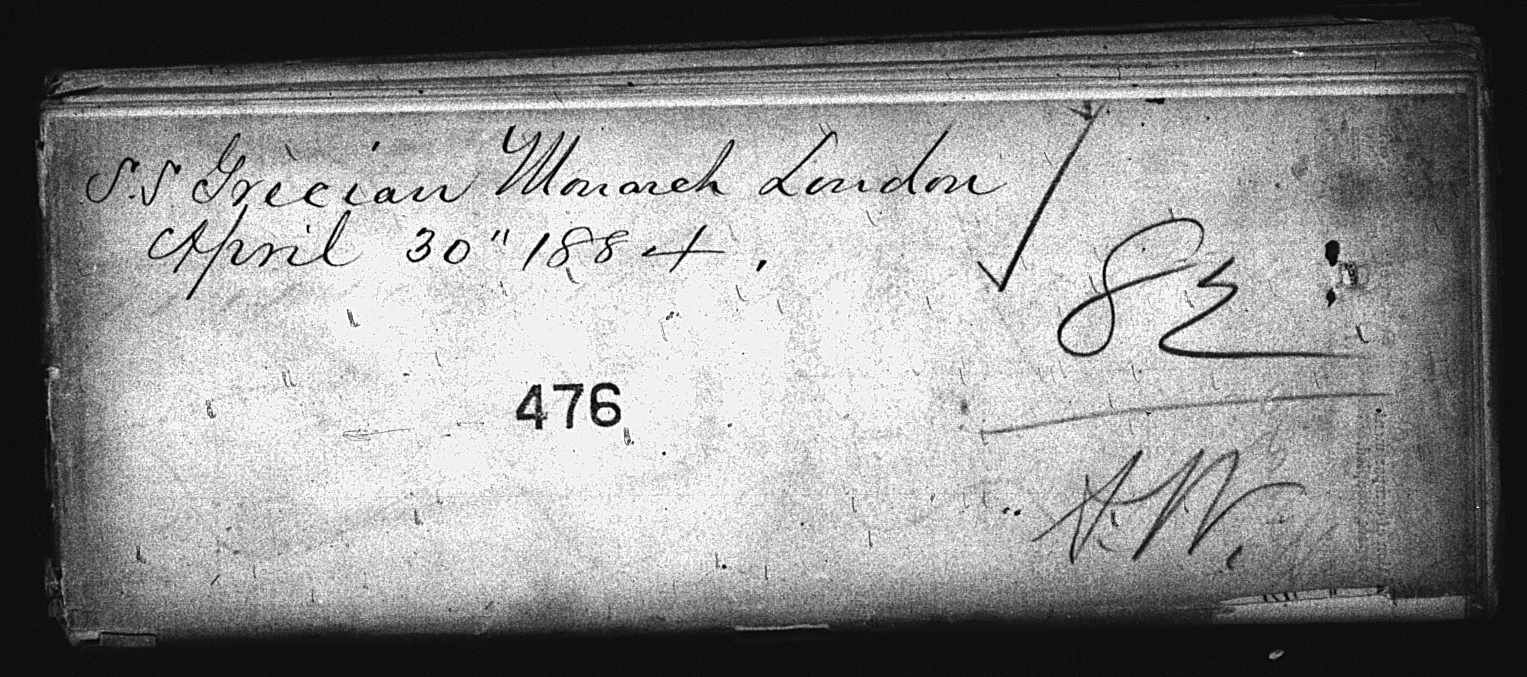 S.S Grecian Monarch London
April 30" 1884.
82
476
A.W.